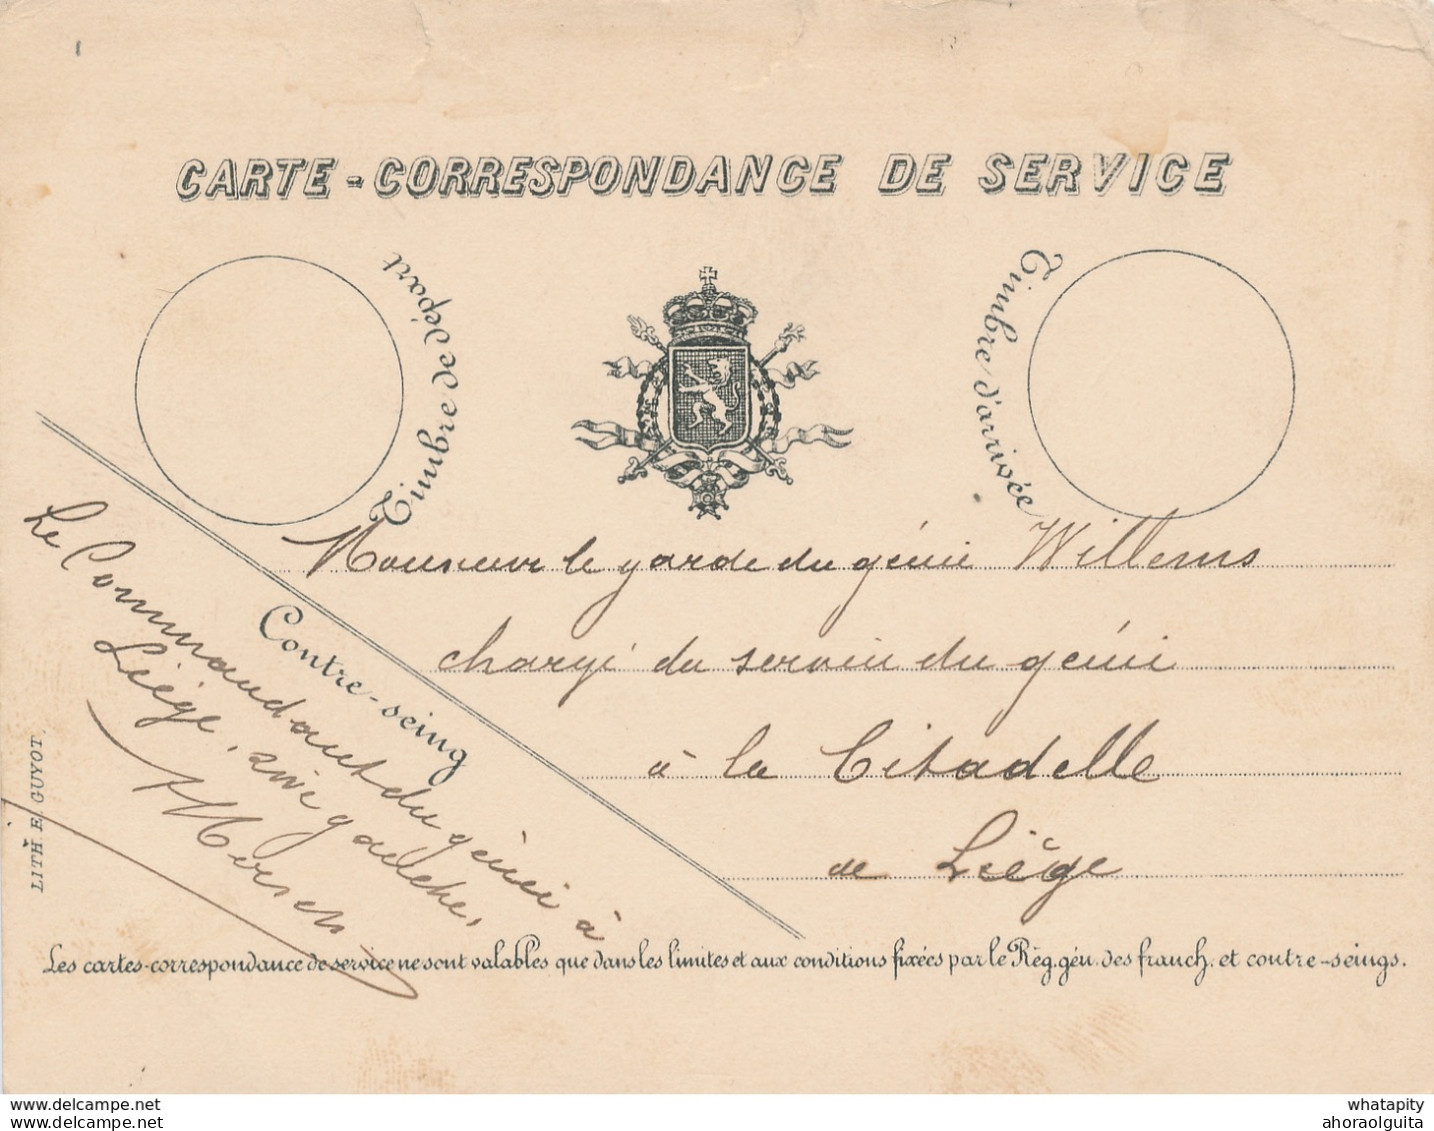 CARTE-CORRESPONDANCE DE SERVICE
Timbre de départ
Timbre d'arrivée
Monsieur le garde du génie Willems
chargé du service du génie
à la Citadelle
de Liège
Contre-seing
Le Commandant du génie à
Liége, rive gauche,
LITH. E. GUYOT.
Les cartes-correspondance de service ne sont valables que dans les limites et aux conditions fixées par le Règ. gén. des franch. et contre-seings.
www.delcampe.net
www.delcampe.net
whatapity
ahoraolguita